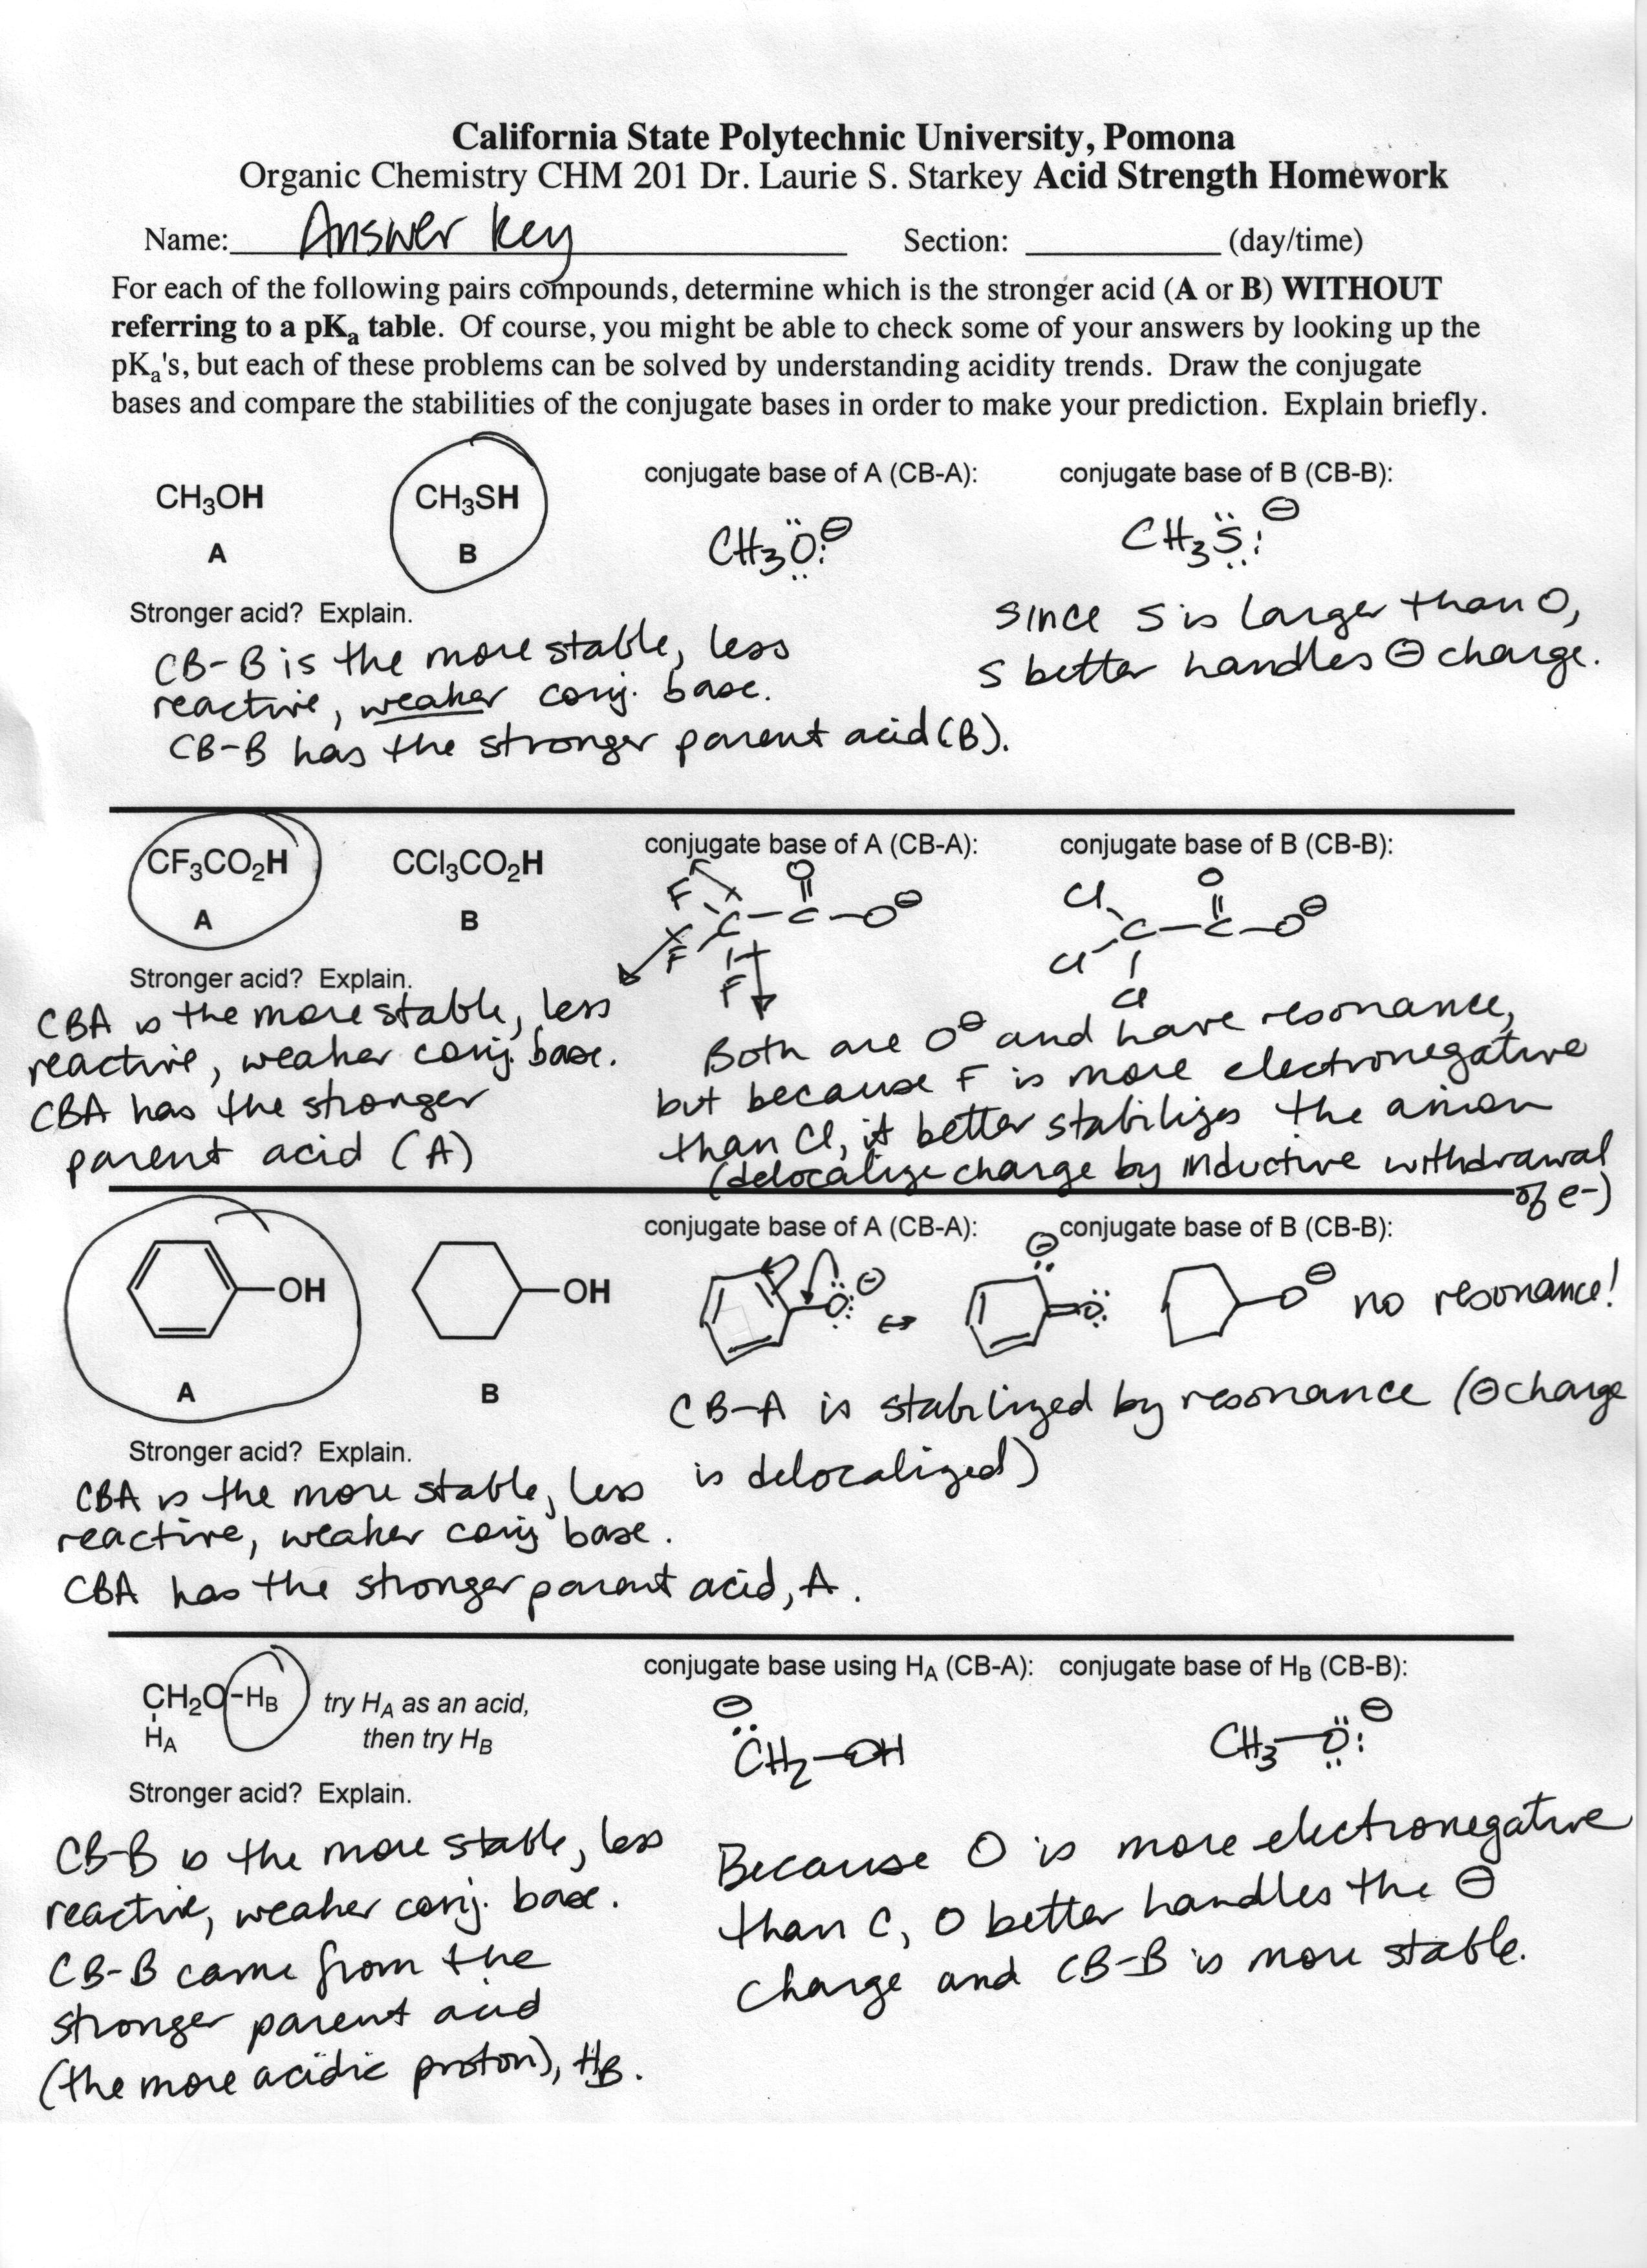 California State Polytechnic University, Pomona
Organic Chemistry CHM 201 Dr. Laurie S. Starkey Acid Strength Homework
Name: Answer Key Section: (day/time)
For each of the following pairs compounds, determine which is the stronger acid (A or B) WITHOUT
referring to a pKa table. Of course, you might be able to check some of your answers by looking up the
pKa's, but each of these problems can be solved by understanding acidity trends. Draw the conjugate
bases and compare the stabilities of the conjugate bases in order to make your prediction. Explain briefly.
conjugate base of A (CB-A): conjugate base of B (CB-B):
CH3OH CH3SH
CH3O:⊖ CH3S:⊖
A B
Stronger acid? Explain.
CB-B is the more stable, less
reactive, weaker conj. base.
CB-B has the stronger parent acid (B).
since S is larger than O,
S better handles ⊖ charge.
conjugate base of A (CB-A): conjugate base of B (CB-B):
CF3CO2H CCl3CO2H
A B
F F F C – C – O⊖
O
Cl Cl Cl C – C – O⊖
O
Stronger acid? Explain.
CBA is the more stable, less
reactive, weaker conj. base.
CBA has the stronger
parent acid (A)
Both are O⊖ and have resonance,
but because F is more electronegative
than Cl, it better stabilizes the anion
(delocalize charge by inductive withdrawal
of e-)
conjugate base of A (CB-A): conjugate base of B (CB-B):
OH OH
O:⊖ ↔ ⊖ =O: O⊖ no resonance!
A B
CB-A is stabilized by resonance (⊖ charge
is delocalized)
Stronger acid? Explain.
CBA is the more stable, less
reactive, weaker conj base.
CBA has the stronger parent acid, A.
conjugate base using HA (CB-A): conjugate base of HB (CB-B):
CH2O-HB try HA as an acid,
HA then try HB
⊖ CH2–OH CH3–O:⊖
Stronger acid? Explain.
CB-B is the more stable, less
reactive, weaker conj. base.
CB-B came from the
stronger parent acid
(the more acidic proton), HB.
Because O is more electronegative
than C, O better handles the ⊖
charge and CB-B is more stable.